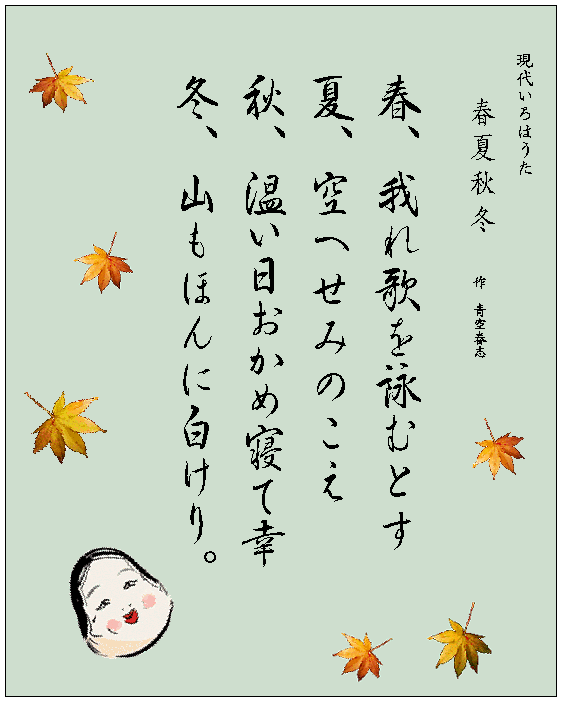 現代いろはうた
春夏秋冬
作 青空春志
春、我れ歌を詠むとす
夏、空へせみのこえ
秋、温い日おかめ寝て幸
冬、山もほんに白けり。